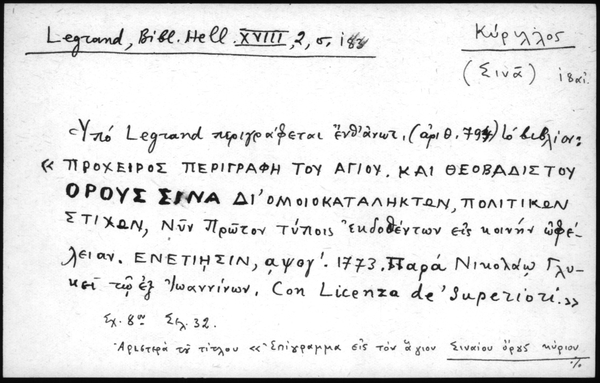 Legrand, Bibl. Hell. XVIII, 2, σ. 183
Κύριλλος
(Σινᾶ) ι8αι.
Ὑπό Legrand περιγράφεται ἐνθ' ἀνωτ. (ἀριθ. 794) τό βιβλίον:
« ΠΡΟΧΕΙΡΟΣ ΠΕΡΙΓΡΑΦΗ ΤΟΥ ΑΓΙΟΥ. ΚΑΙ ΘΕΟΒΑΔΙΣΤΟΥ
ΟΡΟΥΣ ΣΙΝΑ ΔΙ' ΟΜΟΙΟΚΑΤΑΛΗΚΤΩΝ, ΠΟΛΙΤΙΚΩΝ
ΣΤΙΧΩΝ, Νῦν Πρῶτον τύποις Ἐκδοθέντων εἰς κοινήν ὠφέ-
λειαν. ΕΝΕΤΙΗΣΙΝ, αψογ'. 1773. Παρά Νικολάῳ Γλυ-
κεῖ τῷ ἐξ Ἰωαννίνων. Con Licenza de' Superiori.»
Σχ. 8ον Σελ. 32.
Ἀριστερά τοῦ τίτλου « Ἐπίγραμμα εἰς τόν ἅγιον Σιναίου ὄρους κύριον
%